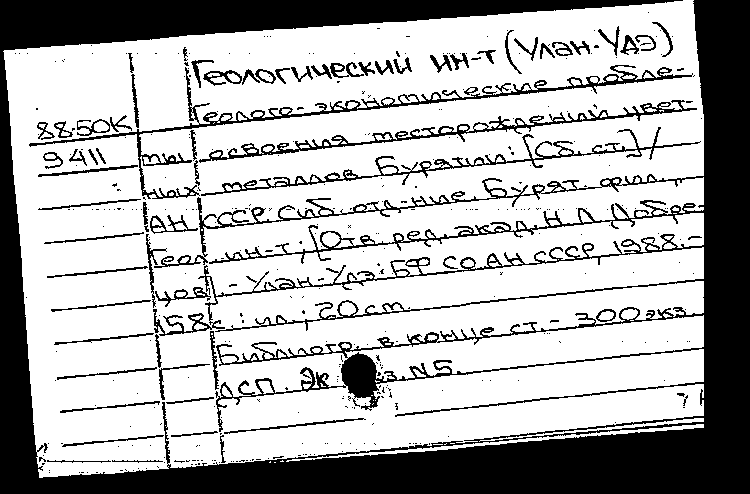 Геологический ин-т (Улан-Удэ)
Геолого-экономические пробле-
88-50К
9411 мы освоения месторождений цвет-
ных металлов Бурятии: [Сб. ст.] /
АН СССР. Сиб. отд-ние. Бурят. фил.,
Геол. ин-т; [Отв. ред. акад. Н.Л. Добре-
цов]. - Улан-Удэ: БФ СО АН СССР, 1988. -
158с.: ил.; 20cm
Библиогр. в конце ст. - 300экз.
ДСП. Экз. N5.